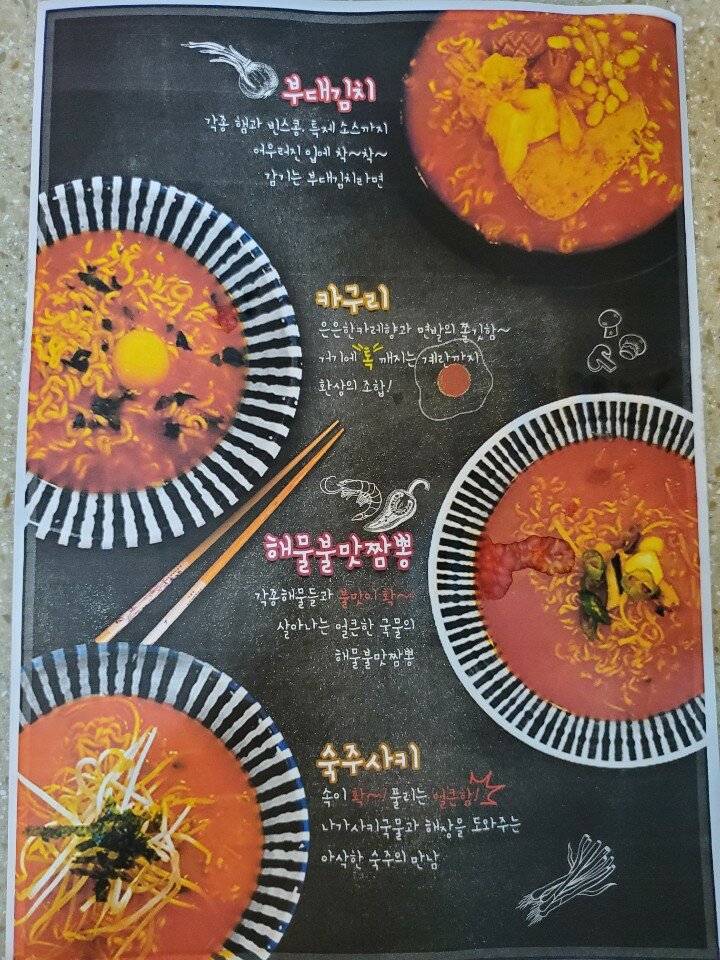 부대김치
각종 햄과 빈스콩, 특제 소스까지
어우러진 입에 착~착~
감기는 부대김치라면
카구리
은은한카레향과 면발의 쫄깃함~
거기에 톡 깨지는 계란까지
환상의 조합!
해물불맛짬뽕
각종해물들과 불맛이 확~
살아나는 얼큰한 국물의
해물불맛짬뽕
숙주사키
속이 확~! 풀리는 얼큰함!
나가사키국물과 해장을 도와주는
아삭한 숙주의 만남